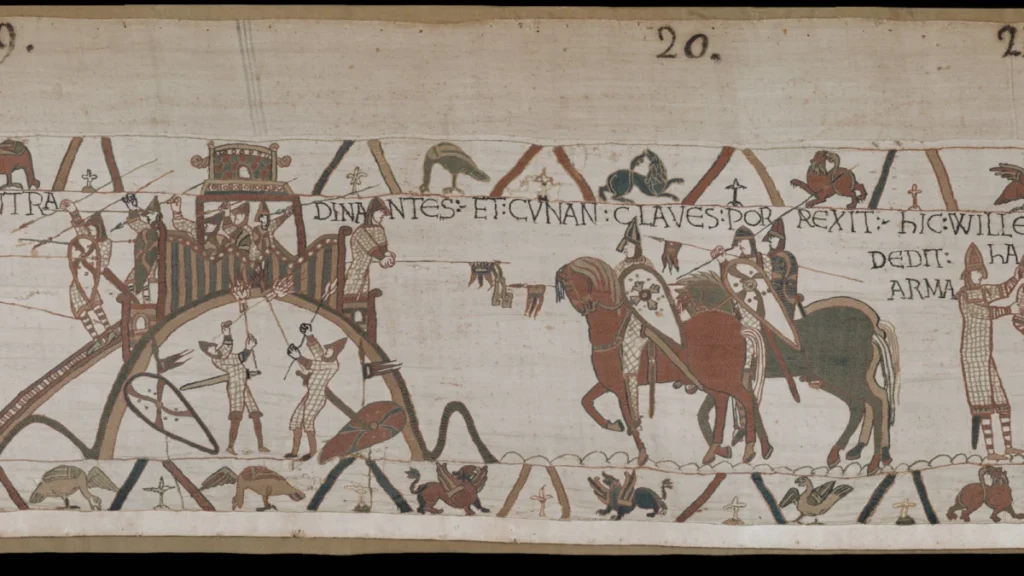 9. 20. 2
NTRA DINANTES: ET: CVNAN: CLAVES: POR REXIT:- HIC: WILLE
DEDIT: HA
ARMA